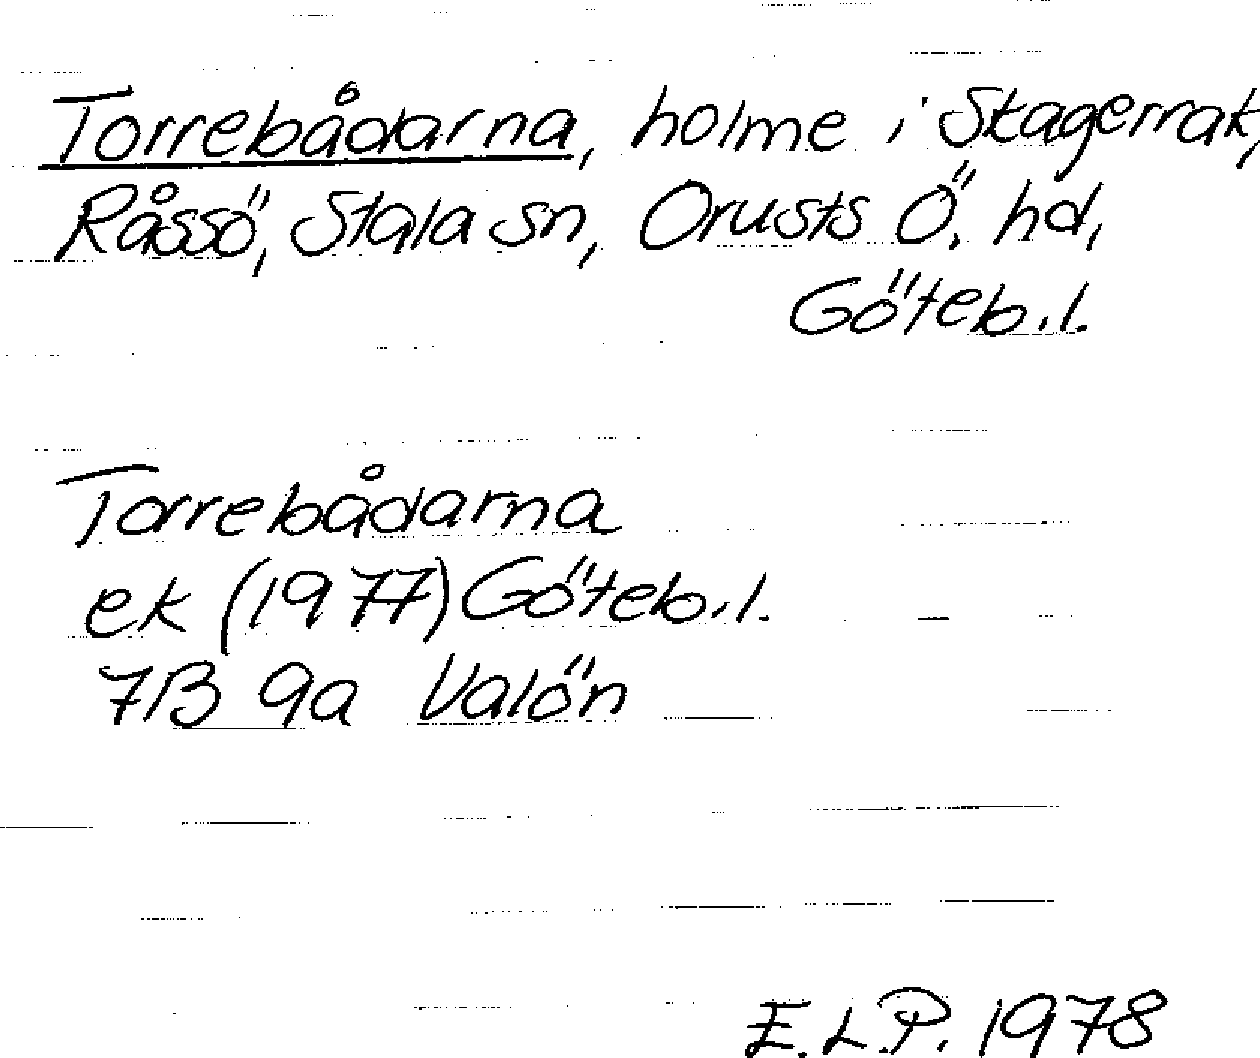 Torrebådarna, holme i Skagerrak,
Råssö, Stala sn, Orusts Ö. hd,
Göteb.l.
Torrebådarna
ek (1977) Göteb.l.
7B 9a Valön
E.L.P. 1978